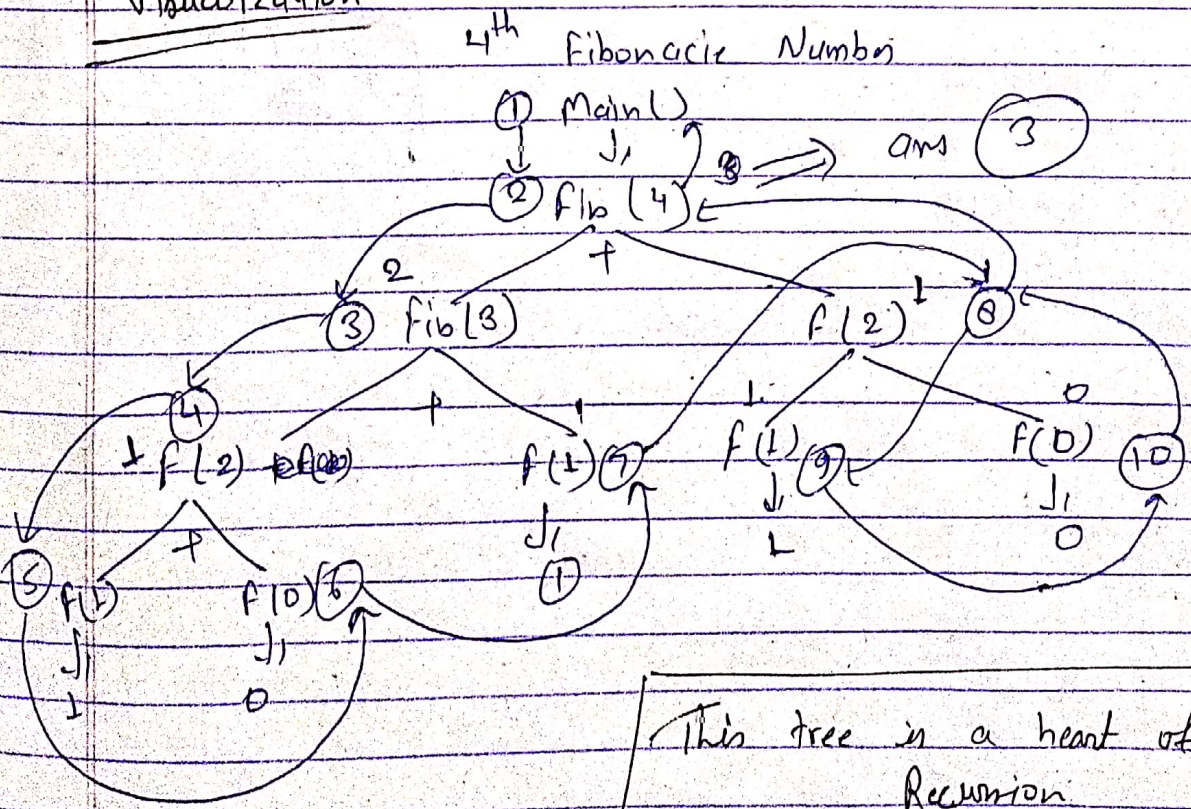 Visualization
4th Fibonacie Number
① Main()
↓ ↓ 3 ⇒ ans 3
② fib (4)
+
2 1
③ fib(3) f(2) ⑧
④ + 1 1 0
1 f(2) f(1) ⑦ f(1) ⑨ f(0) ⑩
+ ↓ ↓ ↓
① 1 0
⑤ f(1) f(0) ⑥
↓ ↓
1 0
This tree is a heart of
Recursion